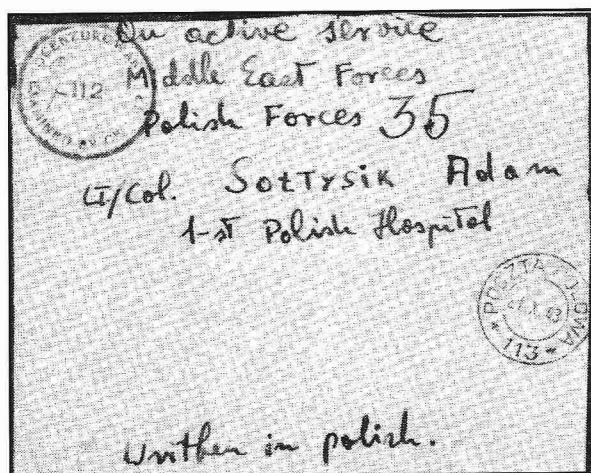 On active service
Middle East Forces
Polish Forces 35
Lt/Col. SOŁTYSIK Adam
1-st Polish Hospital
112
POCZTA POLOWA
113
Written in polish.